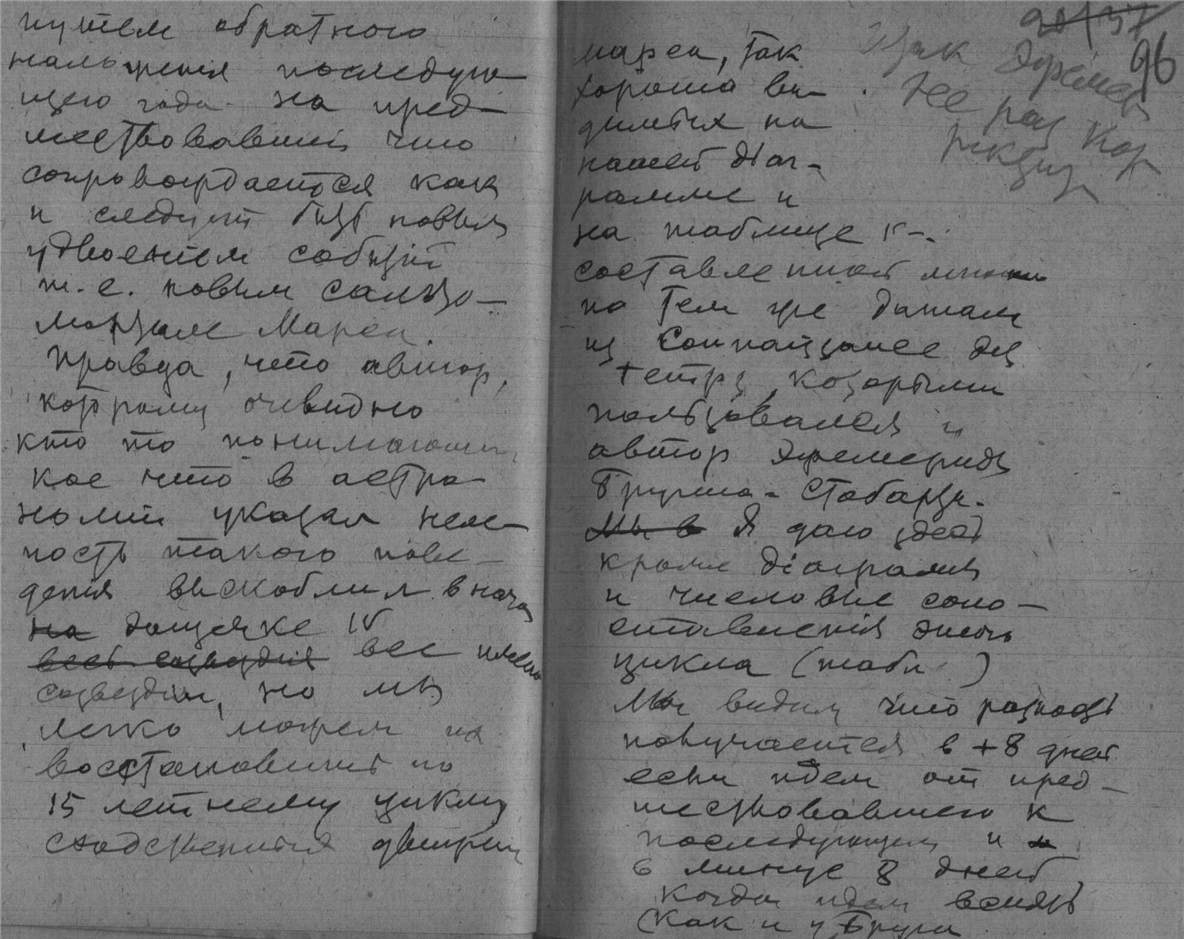 путем обратного
наложения последую
щего года на пред
шествовавший что
сопровождается как
и следует быть новым
удвоением событий
т. е. новым сальто-
мортале Марса.
Правда, что автор,
которому очевидно
кто то понимающий
кое что в астро-
номии указал неле-
пость такого пове-
дения выскоблил в
на дощечке IV
все созвездия все
созвездия, но мы
легко можем их
восстановить по
15 летнему циклу
сходственных
марса, так
хорошо ви-
димых на
нашей діаг-
рамме и
на таблице
составленной мною
по тем же датам
из для
тетра, которыми
пользовался и
автор Эфемериды
Бругша-Стобарта.
Мы в Я даю здесь
кроме діаграммы
и числовые сопо-
ставления этого
цикла (табл. )
Мы видим что разность
получается в +8 дней
если идем от пред-
шествовавшего к
последующему и
в минус 8 дней
когда идем вспять
(как и у
96